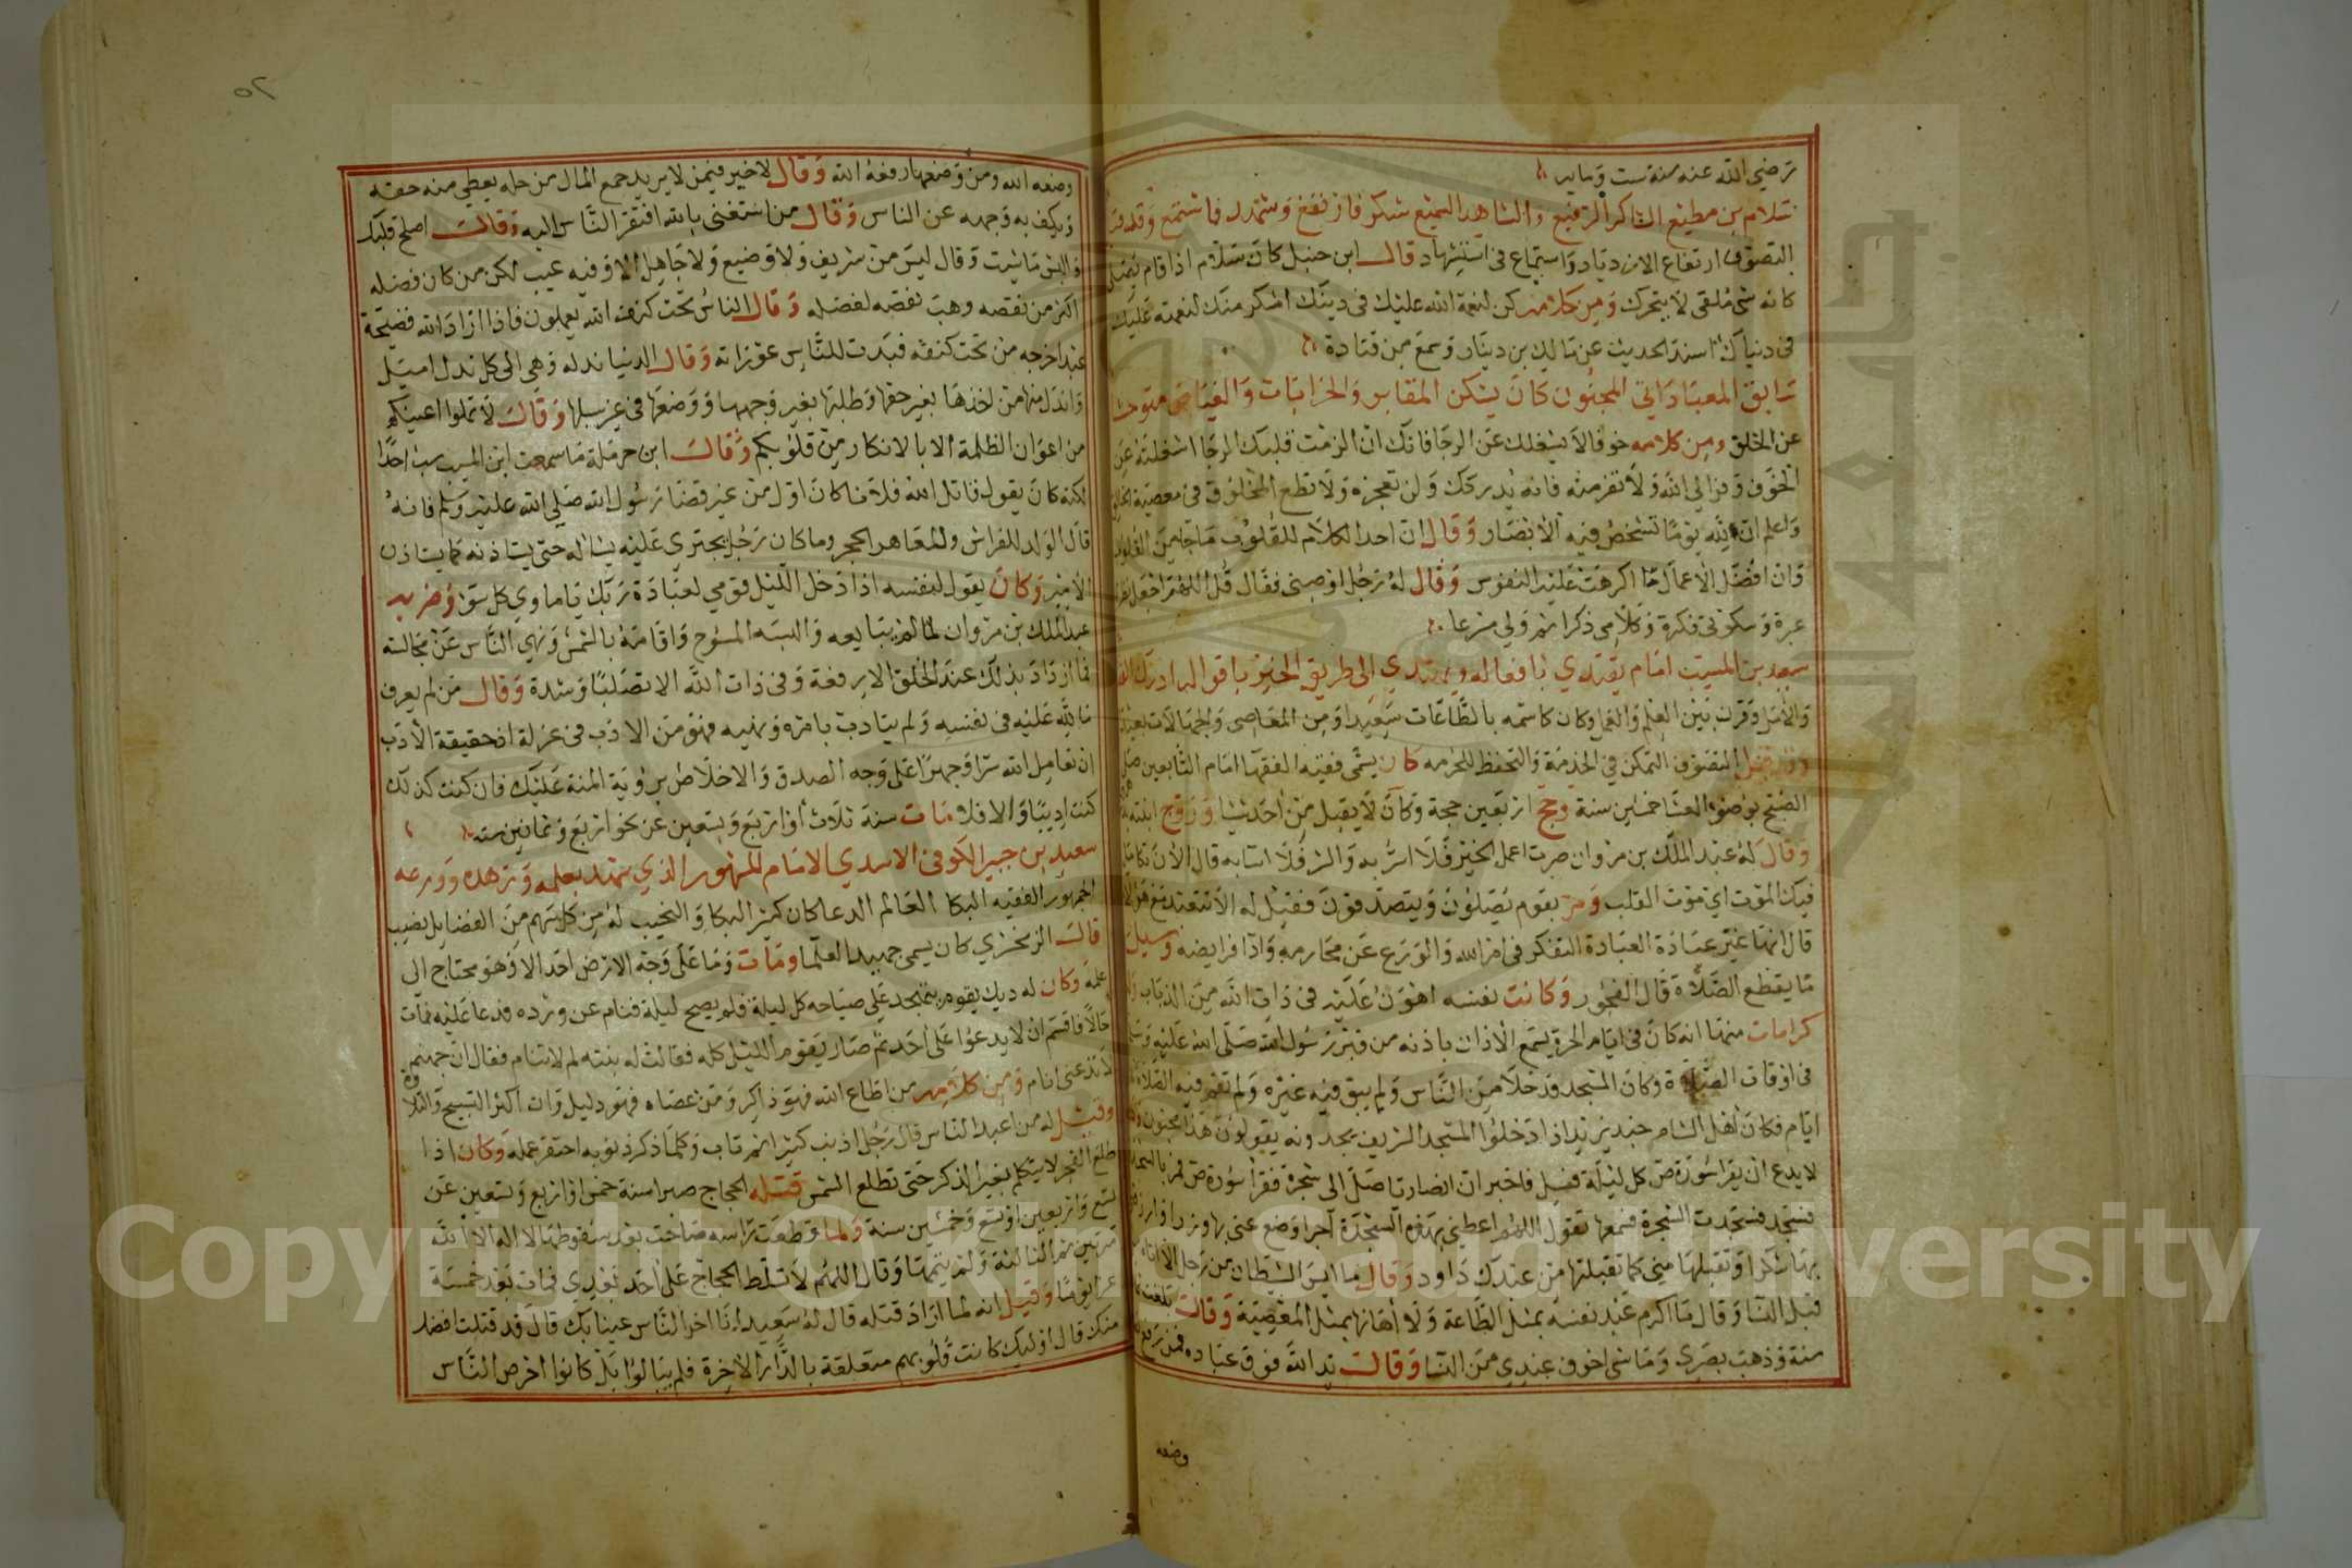 رضي الله عنه سنة ست وماية
سلام بن مطيع الشاكر الرفيع والشاهد السميع شكر فارتفع وشهد فاستمع وقد قيل
التصوف ارتفاع الازدياد واستماع في استشهاد قال ابن حنبل كان سلام اذا قام يصلي
كانه شي ملقى لا يتحرك ومن كلامه كن لنعمة الله عليك في دينك اشكر منك لنعمته عليك
في دنياك اسند الحديث عن مالك بن دينار وسمع من قتادة
سابق المعبادا في المجنون كان يسكن المقابر والخرابات والغياض متوحشا
عن الخلق ومن كلامه خوفا لا يشغلك عن الرجا فانك ان الزمت قلبك الرجا اشغلته عن
الخوف وفر الى الله ولا تفر منه فانه يدركك ولن تعجزه ولا تطع المخلوق في معصية الخالق
واعلم ان لله يوما تشخص فيه الابصار وقال ان احد الكلام للقلوب ما جا من القلوب
وان افضل الاعمال ما اكرهت عليه النفوس وقال له رجل اوصني فقال قل اللهم اجعل نظري
عبرة وسكوتي فكرة وكلامي ذكرا ثم ولى مسرعا
سعيد بن المسيب امام يقتدي بافعاله ويهتدي الى طريق الخير باقواله
وقرن بين العلم والعمل وكان كاسمه بالطاعات سعيدا ومن المعاصي والجهالات بعيدا
وقد قيل التصوف التمكن في الخدمة والتحفظ للحرمه كان يسمى فقيه الفقها امام التابعين صلى
الصبح بوضوء العشا خمسين سنة وحج اربعين حجة وكان لا يقبل من احد شيا وزوج ابنته
وقال له عبد الملك بن مروان صرت اعمل الخير فلا اسر به والشر فلا اساء به قال الان تكامل
فيك الموت اي موت القلب ومر بقوم يصلون ويتصدقون فقيل له الا تقعد مع هولاء
قال انها غير عبادة العبادة التفكر في امر الله والورع عن محارمه وادا فرايضه وسيل
ما يقطع الصلاة قال الفجور وكانت نفسه اهون عليه في ذات الله من الذباب
كرامات منها انه كان في ايام الحرة يسمع الاذان باذنه من قبر رسول الله صلى الله عليه وسلم
في اوقات الصلاة وكان المسجد قد خلا من الناس ولم يبق فيه غيره ولم تقم فيه الصلاة
ايام فكان اهل الشام جند يزيد اذا دخلوا المسجد الشريف يجدونه يقولون هذا مجنون
لا يدع ان يقرا سورة ص كل ليلة فسيل فاخبر ان انصاريا صلى الى شجرة فقرا سورة ص فمر بالسجدة
فسجد فسجدت الشجرة فسمعها تقول اللهم اعطني بهذه السجدة اجرا وضع عني بها وزرا وارزقني
بها شكرا وتقبلها مني كما تقبلتها من عبدك داود وقال ما ايس الشيطان من رجل الا اتاه من
قبل النسا وقال ما اكرم عبد نفسه بمثل الطاعة ولا اهانها بمثل المعصية وقال بلغت
سنة وذهب بصري وما شي اخوف عندي من النسا وقال يد الله فوق عباده فمن رفع
وضعه
٥٢
وضعه الله ومن وضعها رفعه الله وقال لا خير فيمن لا يريد جمع المال من حله يعطي منه حقه
ويكف به وجهه عن الناس وقال من استغنى بالله افتقر الناس اليه وقال اصلح قلبك
والبس ما شيت وقال ليس من شريف ولا وضيع ولا جاهل الا وفيه عيب لكن من كان فضله
اكثر من نقصه وهب نقصه لفضله وقال الناس تحت كنف الله يعملون فاذا اراد الله فضيحة
عبد اخرجه من تحت كنفه فبدت للناس عوراته وقال الدنيا نذله وهي الى كل نذل اميل
وانذل منها من اخذها بغير حقها وطلبها بغير وجهها ووضعها في غير سبيلها وقال لا تملوا اعينكم
من اعوان الظلمة الا بالانكار من قلوبكم وقال ابن حرملة ما سمعت ابن المسيب سب احدا
لكنه كان يقول قاتل الله فلانا كان اول من غير قضا رسول الله صلى الله عليه وسلم فانه
قال الولد للفراش وللعاهر الحجر وما كان رجل يجتري عليه يساله حتى يستاذنه كما يستاذن
الامير وكان يقول لنفسه اذا دخل الليل قومي لعبادة ربك يا ماوي كل سوء وضربه
عبد الملك بن مروان لما لم يبايعه والبسه المسوح واقامه بالشمس ونهي الناس عن مجالسته
فما ازداد بذلك عند الخلق الا رفعة وفي ذات الله الا تصلبا وشدة وقال من لم يعرف
ما لله عليه في نفسه ولم يتادب بامره ونهيه فهو من الادب في عزلة اذ حقيقة الادب
ان تعامل الله سرا وجهرا على وجه الصدق والاخلاص برؤية المنة عليك فان كنت كذلك
كنت اديبا والا فلا مات سنة ثلاث او اربع وتسعين عن نحو اربع وثمانين سنه
سعيد بن جبير الكوفي الاسدي الامام المشهور الذي شهد بعلمه وزهده وورعه
الجمهور الفقيه البكا العالم الدعا كان كثير البكا والنحيب له من كل سهم من الفضايل نصيب
قال الزمخشري كان يسمى جهبيد العلما ومات وما على وجه الارض احد الا وهو محتاج الى
علمه وكان له ديك يقوم يتهجد على صياحه كل ليلة فلم يصح ليلة فنام عن ورده فدعا عليه فمات
حالا فاقسم ان لا يدعوا على احد ثم صار يقوم الليل كله فقالت له بنته لم لا تنام فقال ان جهنم
لا تدعني انام ومن كلامه من اطاع الله فهو ذاكر ومن عصاه فهو دليل وان اكثر التسبيح والتلاوة
وقيل له من اعبد الناس قال رجل اذنب كثيرا ثم تاب وكلما ذكر ذنوبه احتقر عمله وكان اذا
طلع الفجر لا يتكلم بغير الذكر حتى تطلع الشمس قتله الحجاج صبرا سنة خمس او اربع وتسعين عن
تسع واربعين او تسع وخمسين سنة ولما قطعت راسه صاحت بعد سقوطها لا اله الا الله
مرتين ثم الثالثة ولم يتمها وقال اللهم لا تسلط الحجاج على احد بعدي فمات بعد خمسة
عشر يوما وقيل انه لما اراد قتله قال له سعيد انا اخر الناس عينا بك قال قد قتلت افضل
منك قال اوليك كانت قلوبهم متعلقة بالدار الاخرة فلم يبالوا بل كانوا احرص الناس
Copyright © King Saud University